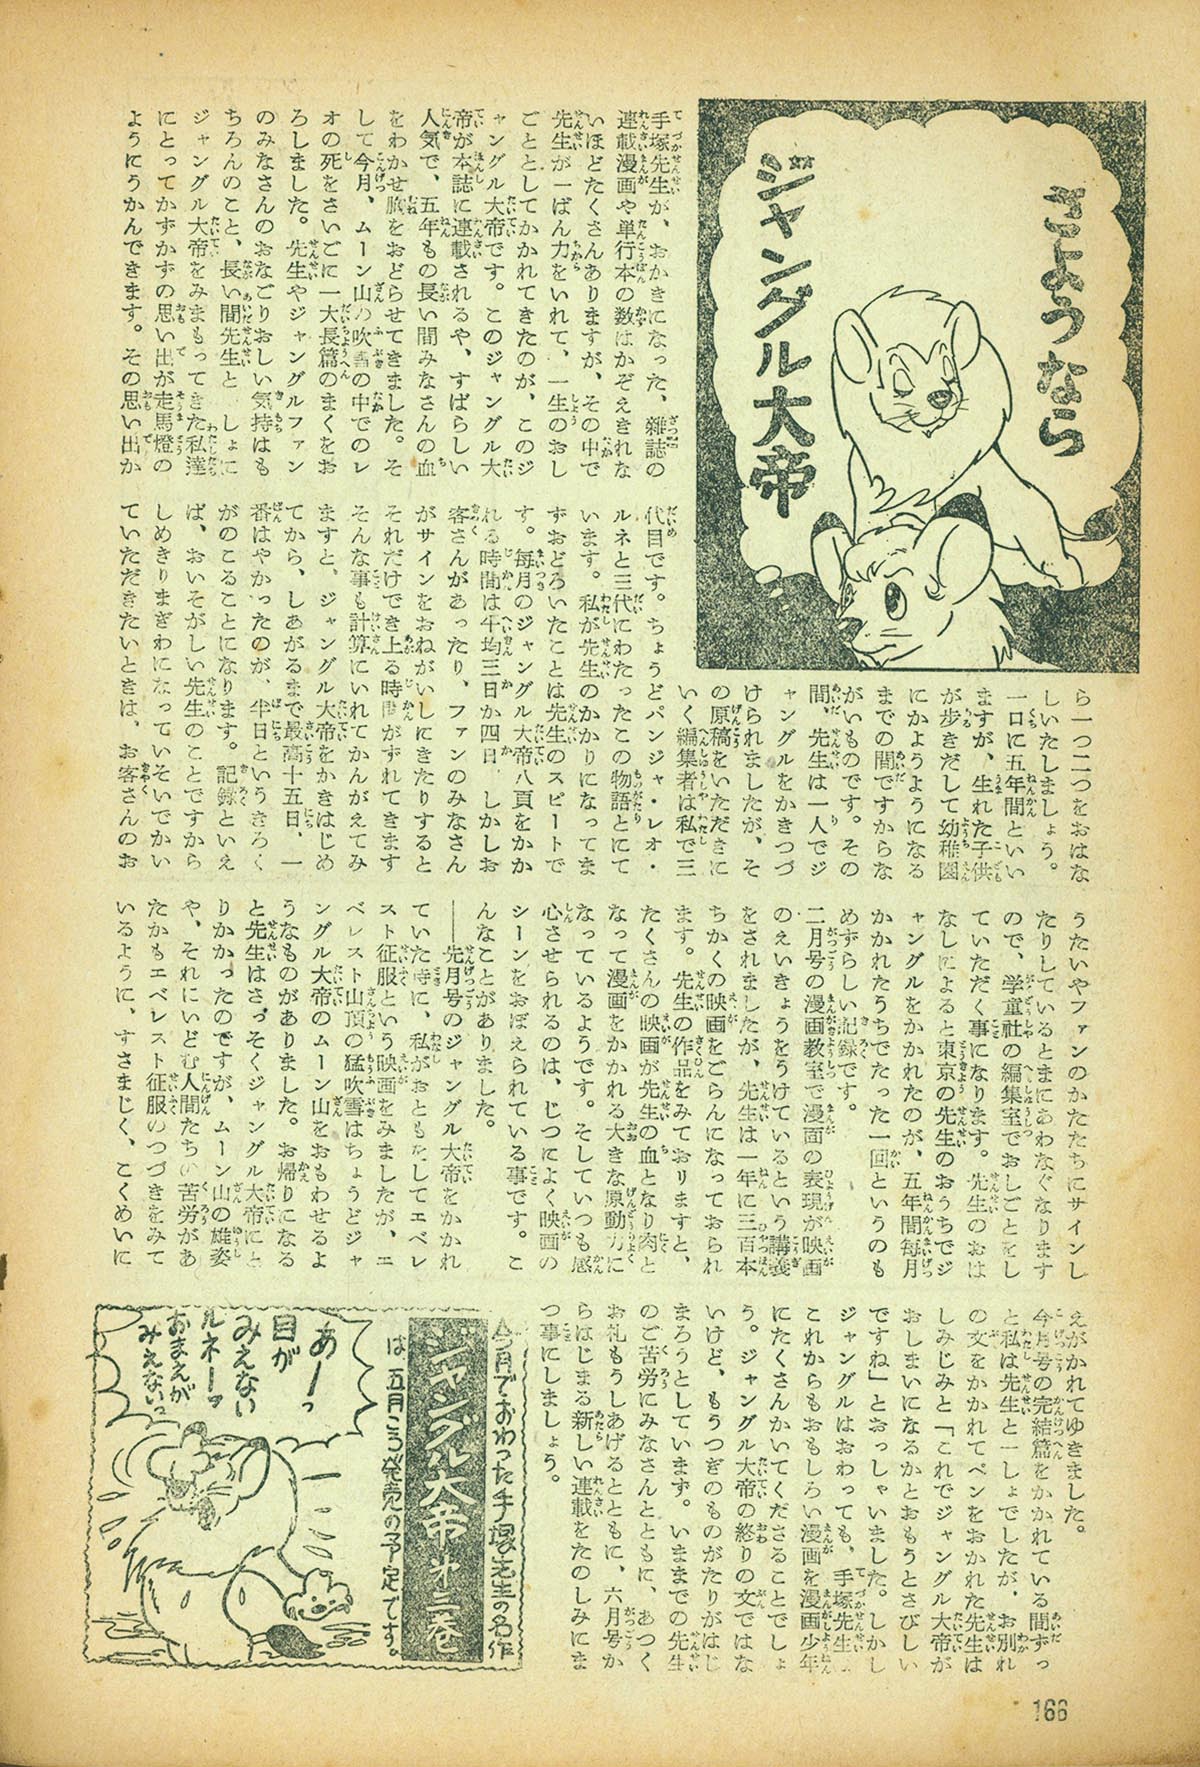 さようなら
ジャングル大帝
手塚先生が、おかきになった、雑誌の
連載漫画や単行本の数はかぞえきれな
いほどたくさんありますが、その中で
先生が一ばん力をいれて、一生のおし
ごととしてかかれてきたのが、このジ
ャングル大帝です。このジャングル大
帝が本誌に連載されるや、すばらしい
人気で、五年もの長い間みなさんの血
をわかせ胸をおどらせてきました。そ
して今月、ムーン山の吹雪の中でのレ
オの死をさいごに一大長篇のまくをお
ろしました。先生やジャングルファン
のみなさんのおなごりおしい気持はも
ちろんのこと、長い間先生と一しょに
ジャングル大帝をみまもってきた私達
にとってかずかずの思い出が走馬燈の
ようにうかんできます。その思い出か
ら一つ二つをおはな
しいたしましょう。
一口に五年間といい
ますが、生れた子供
が歩きだして幼稚園
にかようようになる
までの間ですからな
がいものです。その
間、先生は一人でジ
ャングルをかきつづ
けられましたが、そ
の原稿をいただきに
いく編集者は私で三
代目です。ちょうどパンジャ・レオ・
ルネと三代にわたったこの物語とにて
います。私が先生のかかりになってま
ずおどろいたことは先生のスピートで
す。毎月のジャングル大帝八頁をかか
れる時間は平均三日か四日、しかしお
客さんがあったり、ファンのみなさん
がサインをおねがいしにきたりすると
それだけでき上る時間がずれてきます
そんな事も計算にいれてかんがえてみ
ますと、ジャングル大帝をかきはじめ
てから、しあがるまで最高十五日、一
番はやかったのが、半日というきろく
がのこることになります。記録といえ
ば、おいそがしい先生のことですから
しめきりまぎわになっていそいでかい
ていただきたいときは、お客さんのお
うたいやファンのかたたちにサインし
たりしているとまにあわなぐなります
ので、学童社の編集室でおしごとをし
ていただく事になります。先生のおは
なしによると東京の先生のおうちでジ
ャングルをかかれたのが、五年間毎月
かかれたうちでたった一回というのも
めずらしい記録です。
二月号の漫画教室で漫画の表現が映画
のえいきょうをうけているという講義
をされましたが、先生は一年に三百本
ちかくの映画をごらんになっておられ
ます。先生の作品をみておりますと、
たくさんの映画が先生の血となり肉と
なって漫画をかかれる大きな原動力に
なっているようです。そしていつも感
心させられるのは、じつによく映画の
シーンをおぼえられている事です。こ
んなことがありました。
――先月号のジャングル大帝をかかれ
ていた時に、私がおともをしてエベレ
スト征服という映画をみましたが、エ
ベレスト山頂の猛吹雪はちょうどジャ
ングル大帝のムーン山をおもわせるよ
うなものがありました。お帰りになる
と先生はさっそくジャングル大帝にと
りかかったのですが、ムーン山の雄姿
や、それにいどむ人間たちの苦労があ
たかもエベレスト征服のつづきをみて
いるように、すさまじく、こくめいに
えがかれてゆきました。
今月号の完結篇をかかれている間ずっ
と私は先生と一しょでしたが、お別れ
の文をかかれてペンをおかれた先生は
しみじみと「これでジャングル大帝が
おしまいになるかとおもうとさびしい
ですね」とおっしゃいました。しかし
ジャングルはおわっても、手塚先生は
これからもおもしろい漫画を漫画少年
にたくさんかいてくださることでしょ
う。ジャングル大帝の終りの文ではな
いけど、もうつぎのものがたりがはじ
まろうとしています。いままでの先生
のご苦労にみなさんとともに、あつく
お礼もうしあげるとともに、六月号か
らはじまる新しい連載をたのしみにま
つ事にしましょう。
今月でおわった手塚先生の名作
ジャングル大帝
は五月ごろ発売の予定です。
あーっ
目が
みえない
ルネーッ
おまえが
みえないっ
166